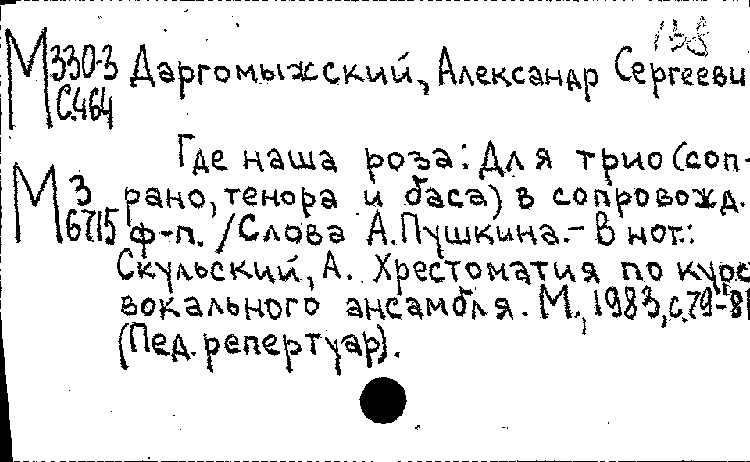 138
М 330-3 Даргомыжский, Александр Сергееви
С.464
Где наша роза: Для трио (соп-
М 3 рано, тенора и баса) в сопровожд.
6715 ф-п. / Слова А. Пушкина. - В нот.:
Скульский, А. Хрестоматия по курс
вокального ансамбля. М., 1983, с. 79-81
(Пед. репертуар).